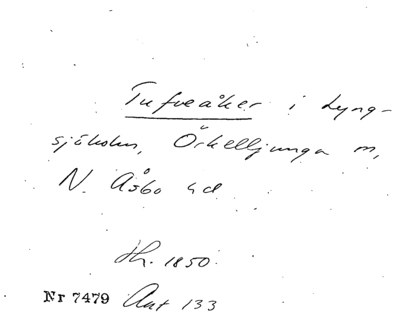 Tufveåker i Lyng-
sjökolm, Örkelljunga m,
N. Åsbo hd
Jh. 1850
Nr 7479 Ant 133